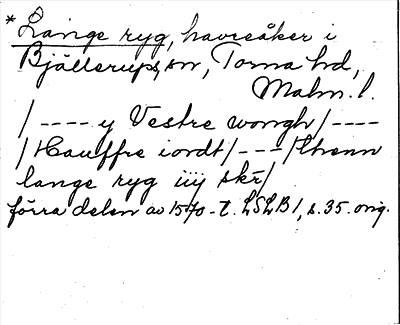 * Lange ryg, havreåker i
Bjällerups sn, Torna hd,
Malm. l.
/ ---- y Vestre wongh / ----
/ Hauffre iordt / --- / Threnn
lange ryg iiij skr /
förra delen av 1570-t. LSLB 1, s. 35. orig.